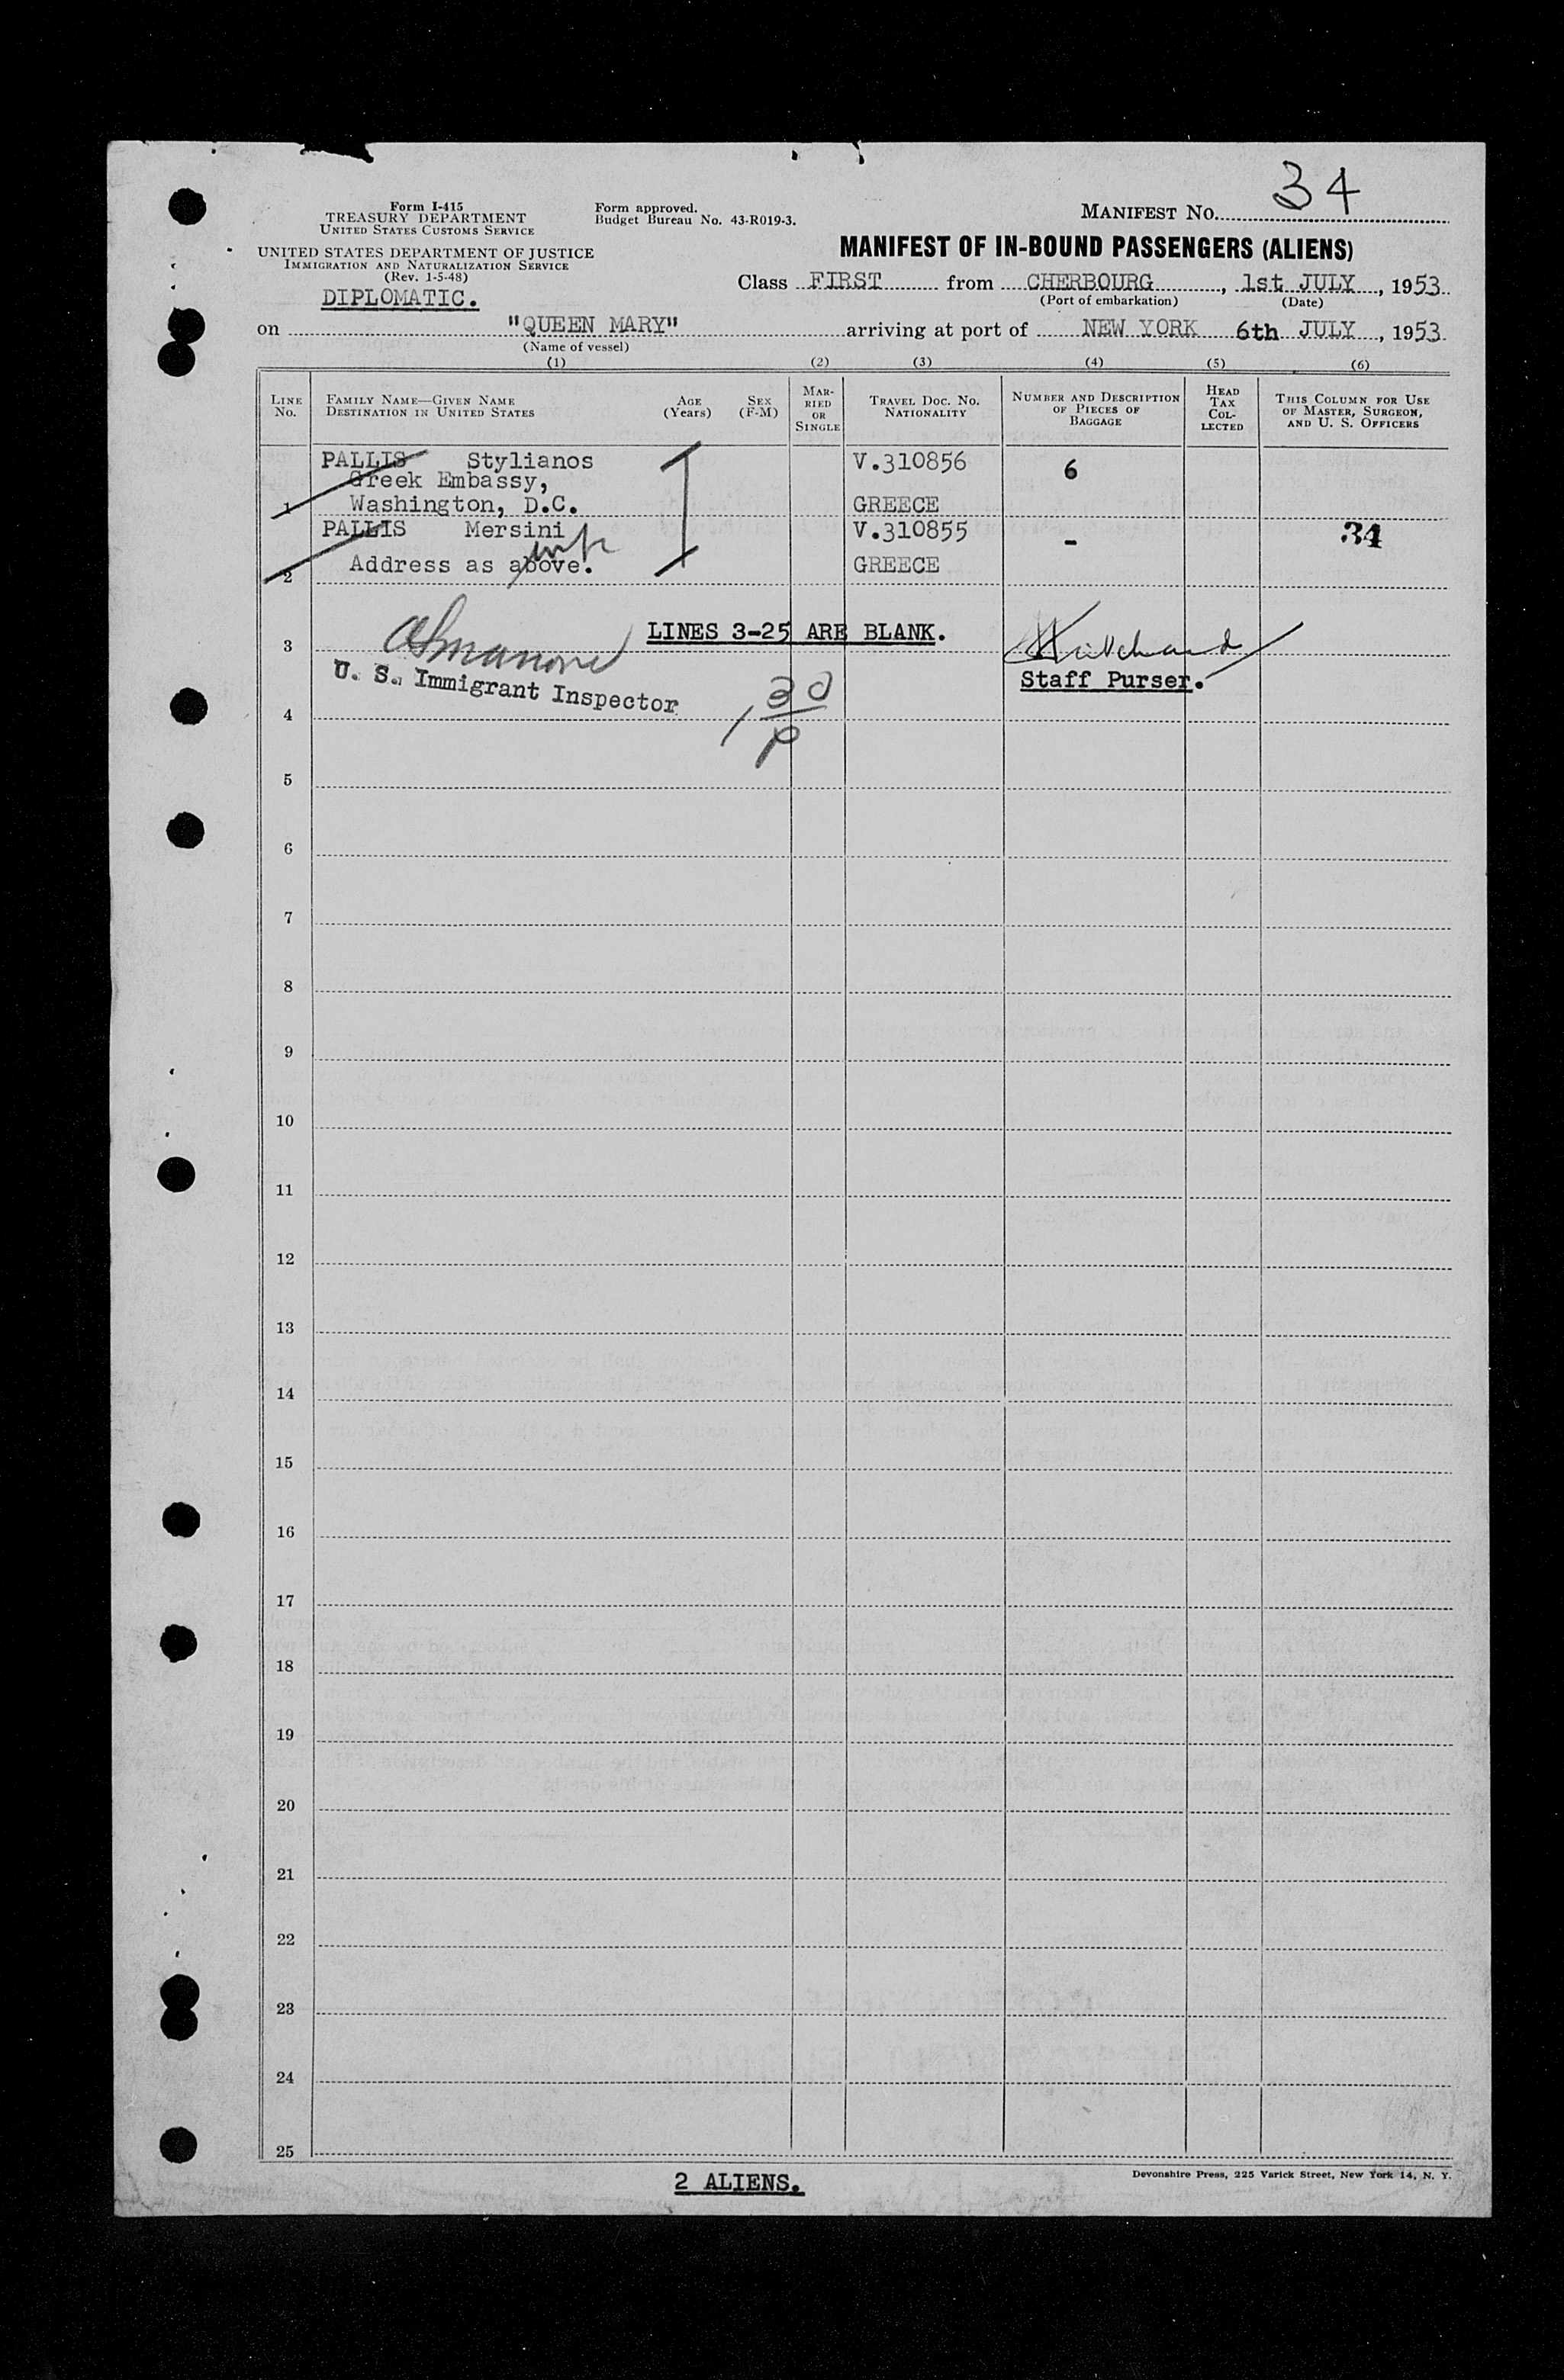 34
Form I-415
TREASURY DEPARTMENT
UNITED STATES CUSTOMS SERVICE
Form approved.
Budget Bureau No. 43-R019-3.
MANIFEST No.
UNITED STATES DEPARTMENT OF JUSTICE
IMMIGRATION AND NATURALIZATION SERVICE
(Rev. 1-5-48)
DIPLOMATIC.
MANIFEST OF IN-BOUND PASSENGERS (ALIENS)
Class FIRST from CHERBOURG, 1st JULY, 1953
(Port of embarkation) (Date)
on "QUEEN MARY" arriving at port of NEW YORK 6th JULY, 1953
(Name of vessel)
(1) (2) (3) (4) (5) (6)
LINE No.
FAMILY NAME—GIVEN NAME
DESTINATION IN UNITED STATES
AGE (Years)
SEX (F-M)
MARRIED OR SINGLE
TRAVEL DOC. NO.
NATIONALITY
NUMBER AND DESCRIPTION OF PIECES OF BAGGAGE
HEAD TAX COLLECTED
THIS COLUMN FOR USE OF MASTER, SURGEON, AND U. S. OFFICERS
PALLIS Stylianos V.310856 6
Greek Embassy,
1 Washington, D.C. GREECE
PALLIS Mersini V.310855 - 34
2 Address as above. GREECE
3 LINES 3-25 ARE BLANK.
U. S. Immigrant Inspector
Staff Purser.
4
5
6
7
8
9
10
11
12
13
14
15
16
17
18
19
20
21
22
23
24
25
2 ALIENS.
Devonshire Press, 225 Varick Street, New York 14, N. Y.